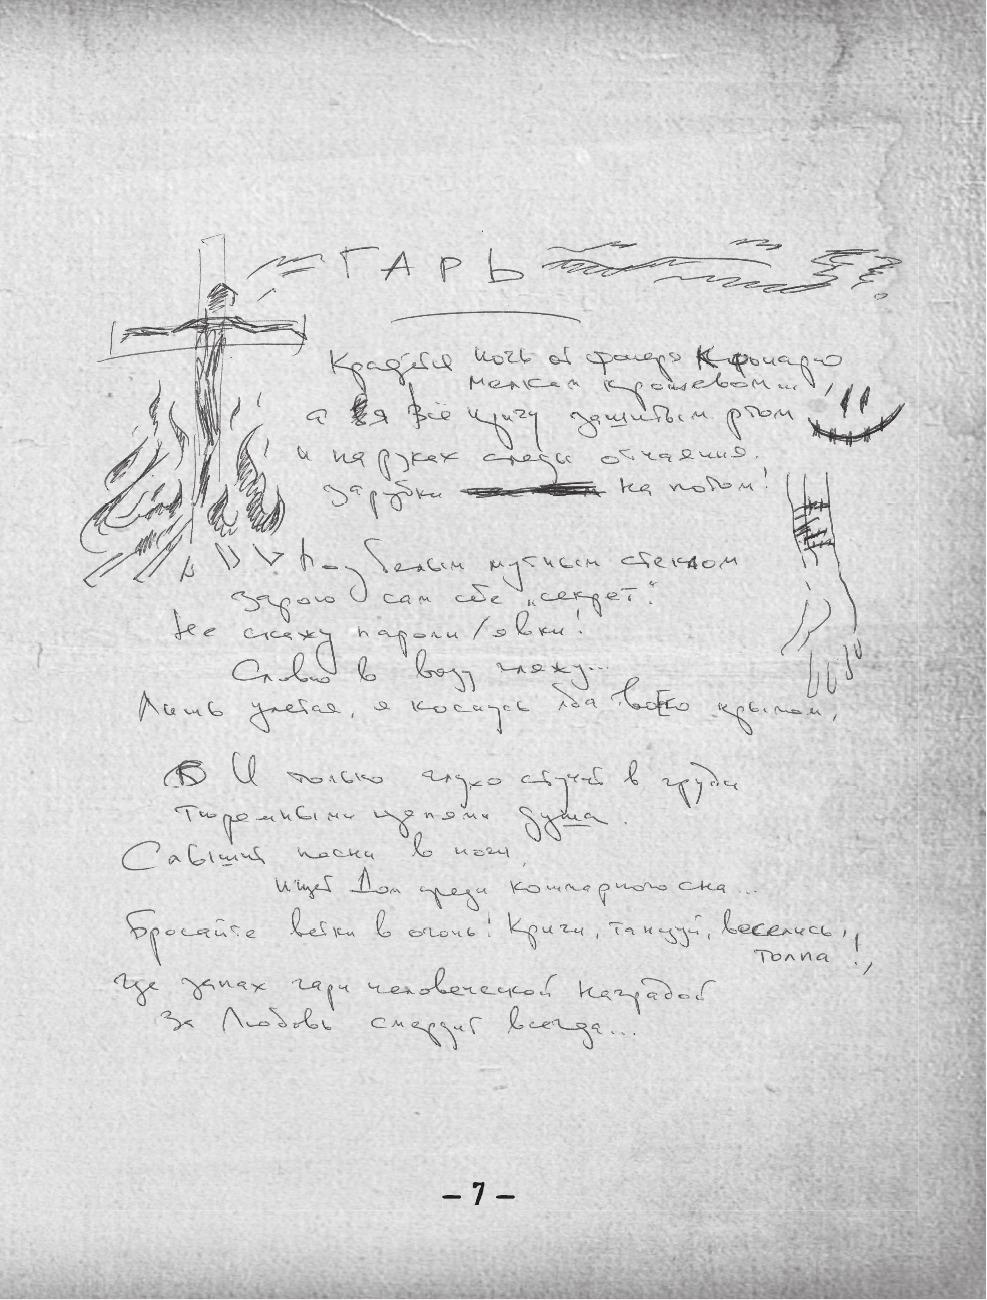 ГАРЬ
Крадётся ночь от фонаря к фонарю
мелким крошевом...
а я всё кричу зашитым ртом
и на руках следы отчаяния.
Зарубки на потом!
Под белым мутным стеклом
Зарою сам себе „секрет".
Не скажу пароли/явки!
Словно в воду гляжу...
Лишь улетая, я коснусь тебя крылом,
И только глухо стучит в груди
тюремными цепями душа.
Слышит песни в ночи,
ищет Дом среди кошмарного сна...
Бросайте ветки в огонь! Кричи, танцуй, веселись,
толпа!,
где запах гари человеческой наградой
За Любовь смердит всегда...
– 7 –